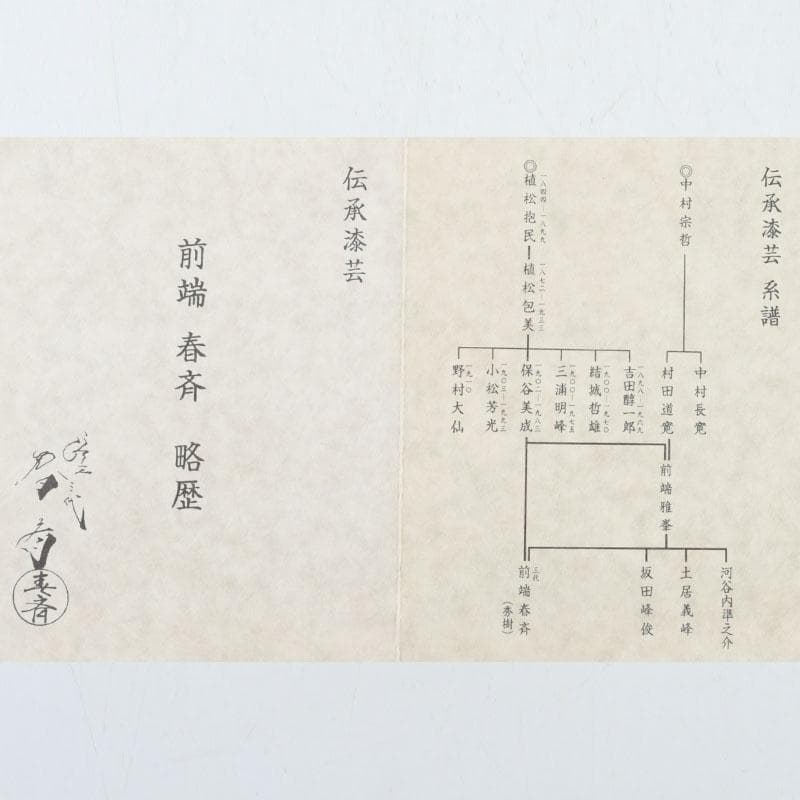 伝承漆芸 系譜
◎中村宗哲
中村長寛
村田道寛
前端雅峯
河谷内準之介
土居義峰
坂田峰俊
◎植松抱民
一八四四―一八九九
植松包美
一八七二―一九三三
吉田醇一郎
一八九八―一九六九
結城哲雄
一九〇〇―一九七〇
三浦明峰
一九〇〇―一九七五
保谷美成
一九〇二―一九八三
小松芳光
一九〇三―一九九三
野村大仙
一九一〇
三代
前端春斉
(秀樹)
伝承漆芸
前端 春斉 略歴
春斉